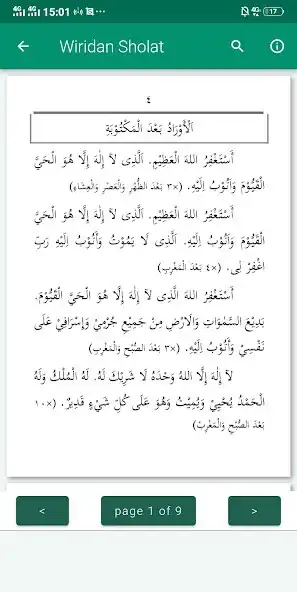 15:01
17
Wiridan Sholat
٤
اَلْأَوْرَادُ بَعْدَ الْمَكْتُوْبَةِ
أَسْتَغْفِرُ اللهَ الْعَظِيْمَ. اَلَّذِى لَآ إِلَهَ إِلَّا هُوَ الْحَيَّ
الْقَيُّوْمَ وَأَتُوْبُ إِلَيْهِ. (×٣ بَعْدَ الظُّهْرِ وَالْعَصْرِ وَالْعِشَاءِ)
أَسْتَغْفِرُ اللهَ الْعَظِيْمَ. اَلَّذِى لَآ إِلَهَ إِلَّا هُوَ الْحَيَّ
الْقَيُّوْمَ وَأَتُوْبُ إِلَيْهِ. اَلَّذِى لَا يَمُوْتُ وَأَتُوْبُ إِلَيْهِ رَبِّ
اغْفِرْ لِى. (×٤ بَعْدَ الْمَغْرِبِ)
أَسْتَغْفِرُ اللهَ الَّذِى لَآ إِلَهَ إِلَّا هُوَ الْحَيَّ الْقَيُّوْمَ.
بَدِيْعَ السَّمٰوَاتِ وَالْاَرْضِ مِنْ جَمِيْعِ جُرْمِيْ وَإِسْرَافِيْ عَلَى
نَفْسِيْ وَأَتُوْبُ إِلَيْهِ. (×٣ بَعْدَ الصُّبْحِ وَالْمَغْرِبِ)
لآ إِلَهَ إِلَّا اللهُ وَحْدَهُ لَا شَرِيْكَ لَهُ. لَهُ الْمُلْكُ وَلَهُ
الْحَمْدُ يُحْيِيْ وَيُمِيْتُ وَهُوَ عَلَى كُلِّ شَيْءٍ قَدِيْرٌ. (×١٠
بَعْدَ الصُّبْحِ وَالْمَغْرِبِ)
<
page 1 of 9
>